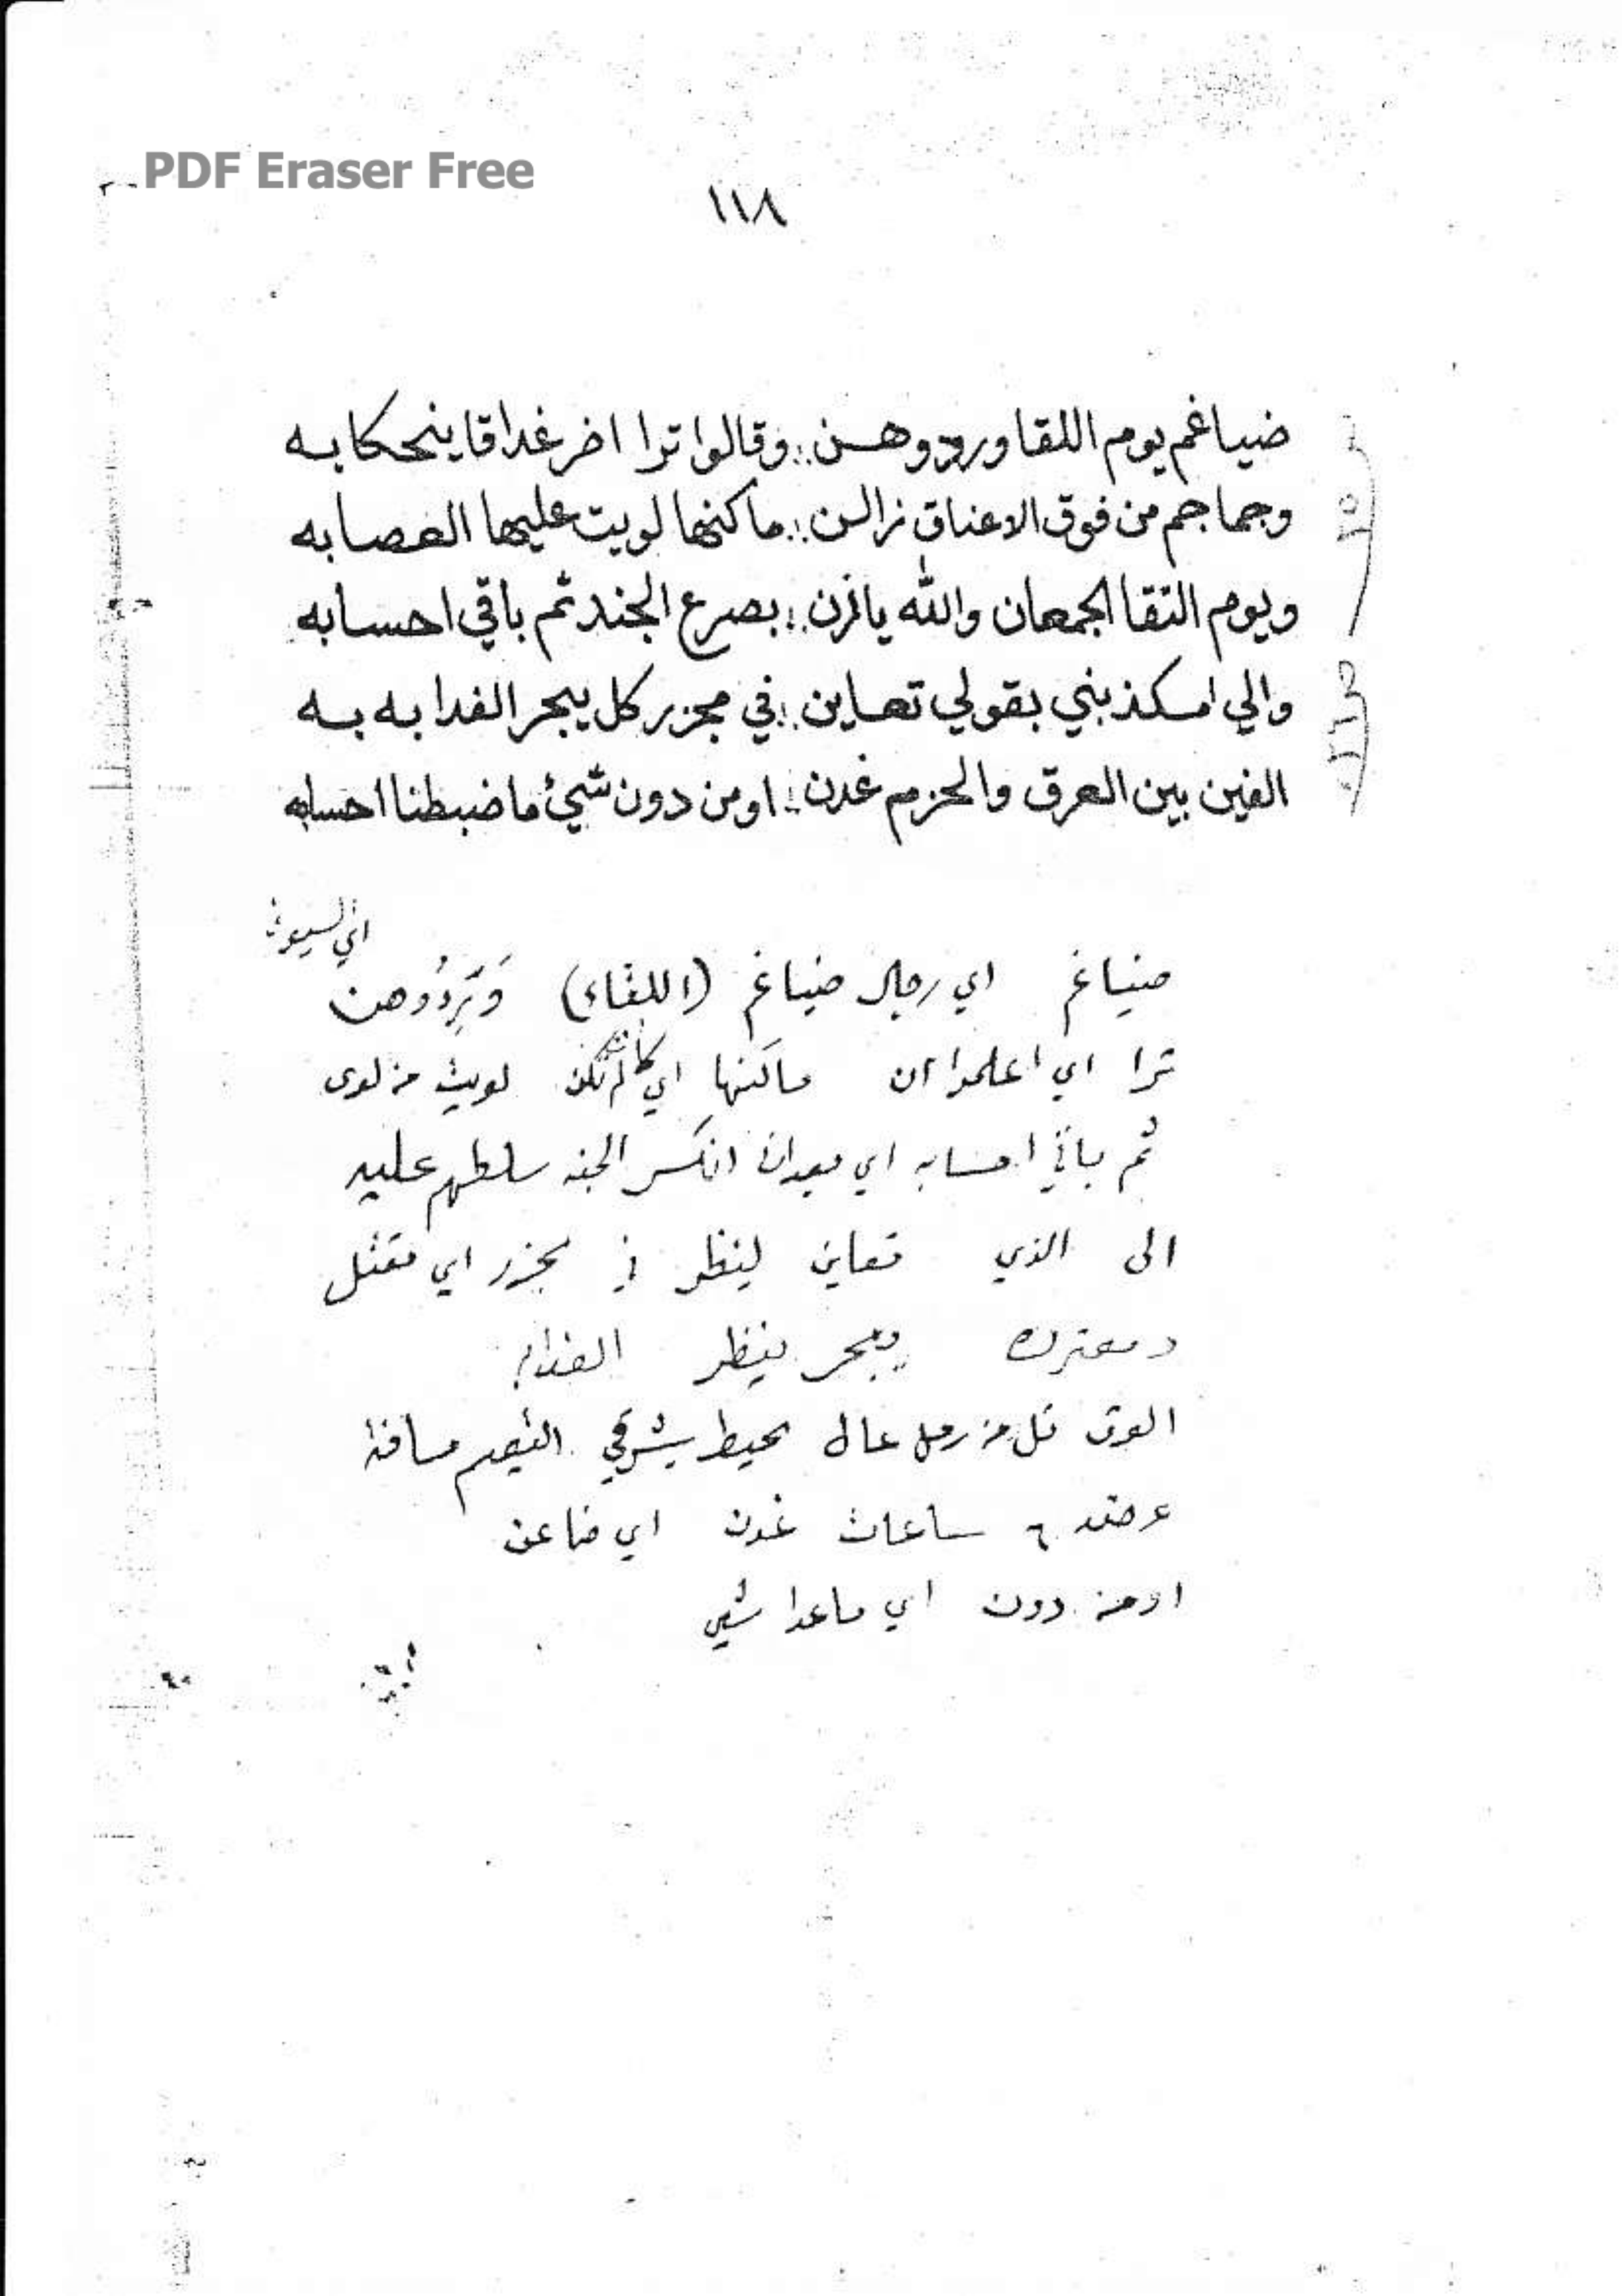 PDF Eraser Free
١١٨
ضياغم يوم اللقا وردوهن :. وقالوا ترا اخر غدا قا ينحكا به
وجماجم من فوق الاعناق زالن :. ماكنها لويت عليها العصابه
ويوم التقا الجمعان والله ياذن :. بصرع الجند ثم باقي احسابه
والي امسكذبني بقولي تعاين :. في مجزر كل يبحر الغدا به به
الفين بين العرق والحزم غدن :. اومن دون شيئ ما ضبطنا احسابه
اي السيوف
ضياغم اي رجال ضياغم (اللقاء) وردوهن
ترا اي اعلموا ان ماكنها اي لم تكن لويت من لوى
ثم باقي احسابه اي بعد ان انكسر الجند سلطهم عليه
الى الذي تعاين لينظر في مجزر اي مقتل
ومعترك يبحر ينظر
العرق تل من رمل عال يحيط بشرقي القصيم مسافة
٦ ساعات غدن اي ضاعن
اومن دون اي ماعدا شي